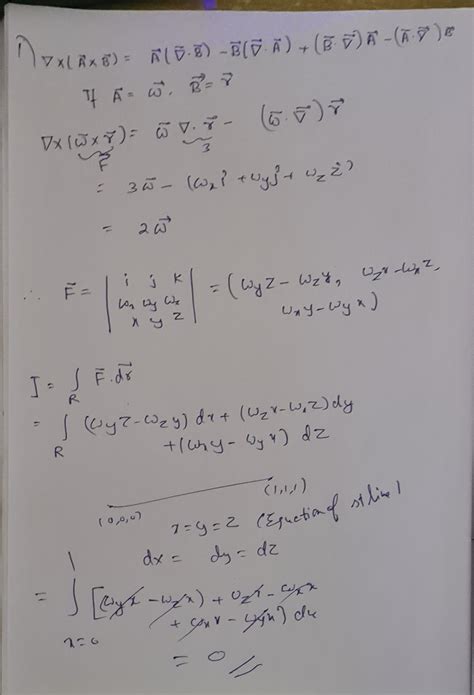 1) ∇×(A⃗×B⃗) = A⃗(∇⃗·B⃗) − B⃗(∇⃗·A⃗) + (B⃗·∇⃗)A⃗ − (A⃗·∇⃗)B⃗
If A⃗ = ω⃗, B⃗ = r⃗
∇×(ω⃗×r⃗) = ω⃗ ∇·r⃗ − (ω⃗·∇⃗)r⃗
F⃗ 3
= 3ω⃗ − (ωxî + ωyĵ + ωzẑ)
= 2ω⃗
∴ F⃗ = | i j k | = (ωyz − ωzy, ωzx − ωxz,
| ωx ωy ωz | ωxy − ωyx)
| x y z |
I = ∫R F⃗·dr⃗
= ∫R (ωyz − ωzy) dx + (ωzx − ωxz) dy
+ (ωxy − ωyx) dz
(0,0,0) (1,1,1)
x = y = z (Equation of st line)
dx = dy = dz
= ∫ x=0 1 [(ωyx − ωzx) + ωzx − ωxx
+ ωxx − ωyx] dx
= 0 //